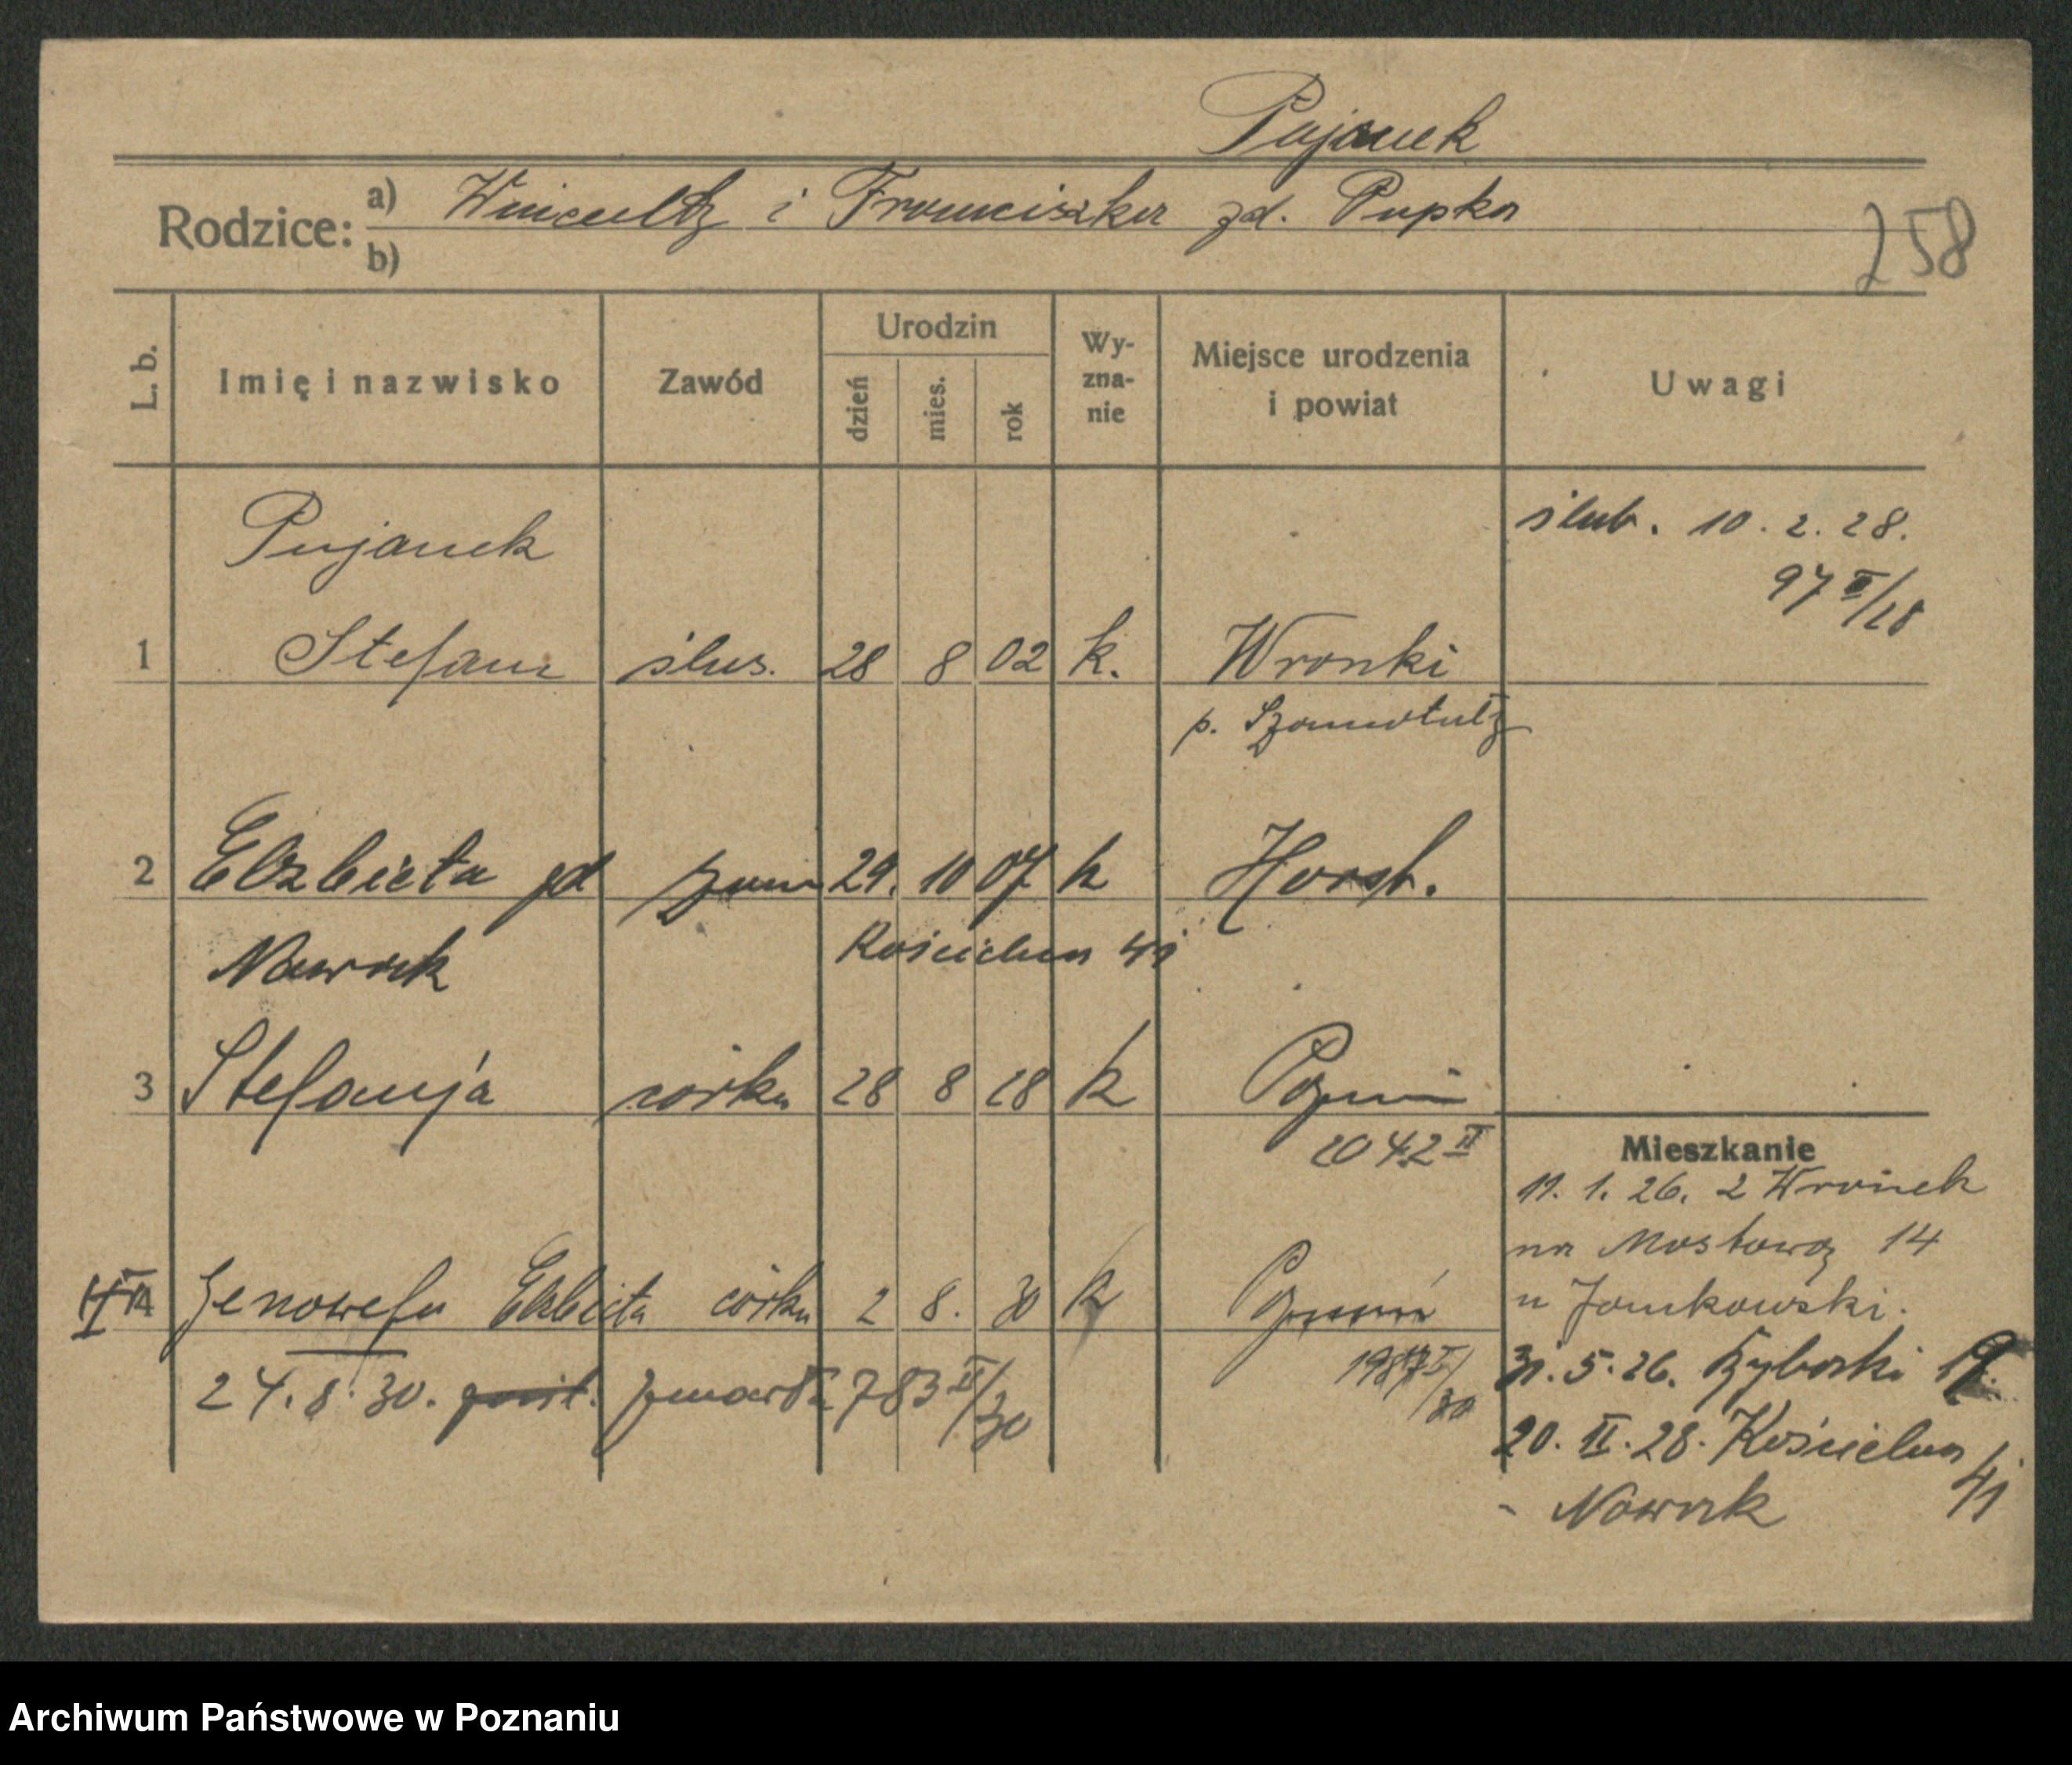 Pujanek
Rodzice: a) Wincenty i Franciszka zd. Pupka
b)
258
L. b. Imię i nazwisko Zawód Urodzin dzień mies. rok Wy-zna-nie Miejsce urodzenia i powiat Uwagi
ślub. 10. 2. 28.
97 II/28
Pujanek
1 Stefan ślus. 28 8 02 k. Wronki
p. Szamotuły
2 Elżbieta zd 29. 10 07 k Horst.
Nowak Kościelna 41
3 Stefanja córka 28 8 28 k Poznań
1042 II
Mieszkanie
11. 1. 26. z Wronek
na Mostową 14
u Jankowski.
4 Genowefa Elżbieta córka 2 8. 30 k Poznań
/30
24. 8. 30. zmarła 783 II/30
31. 5. 26. Rybaki 19.
20. II. 28. Kościelna 41
- Nowak
Archiwum Państwowe w Poznaniu